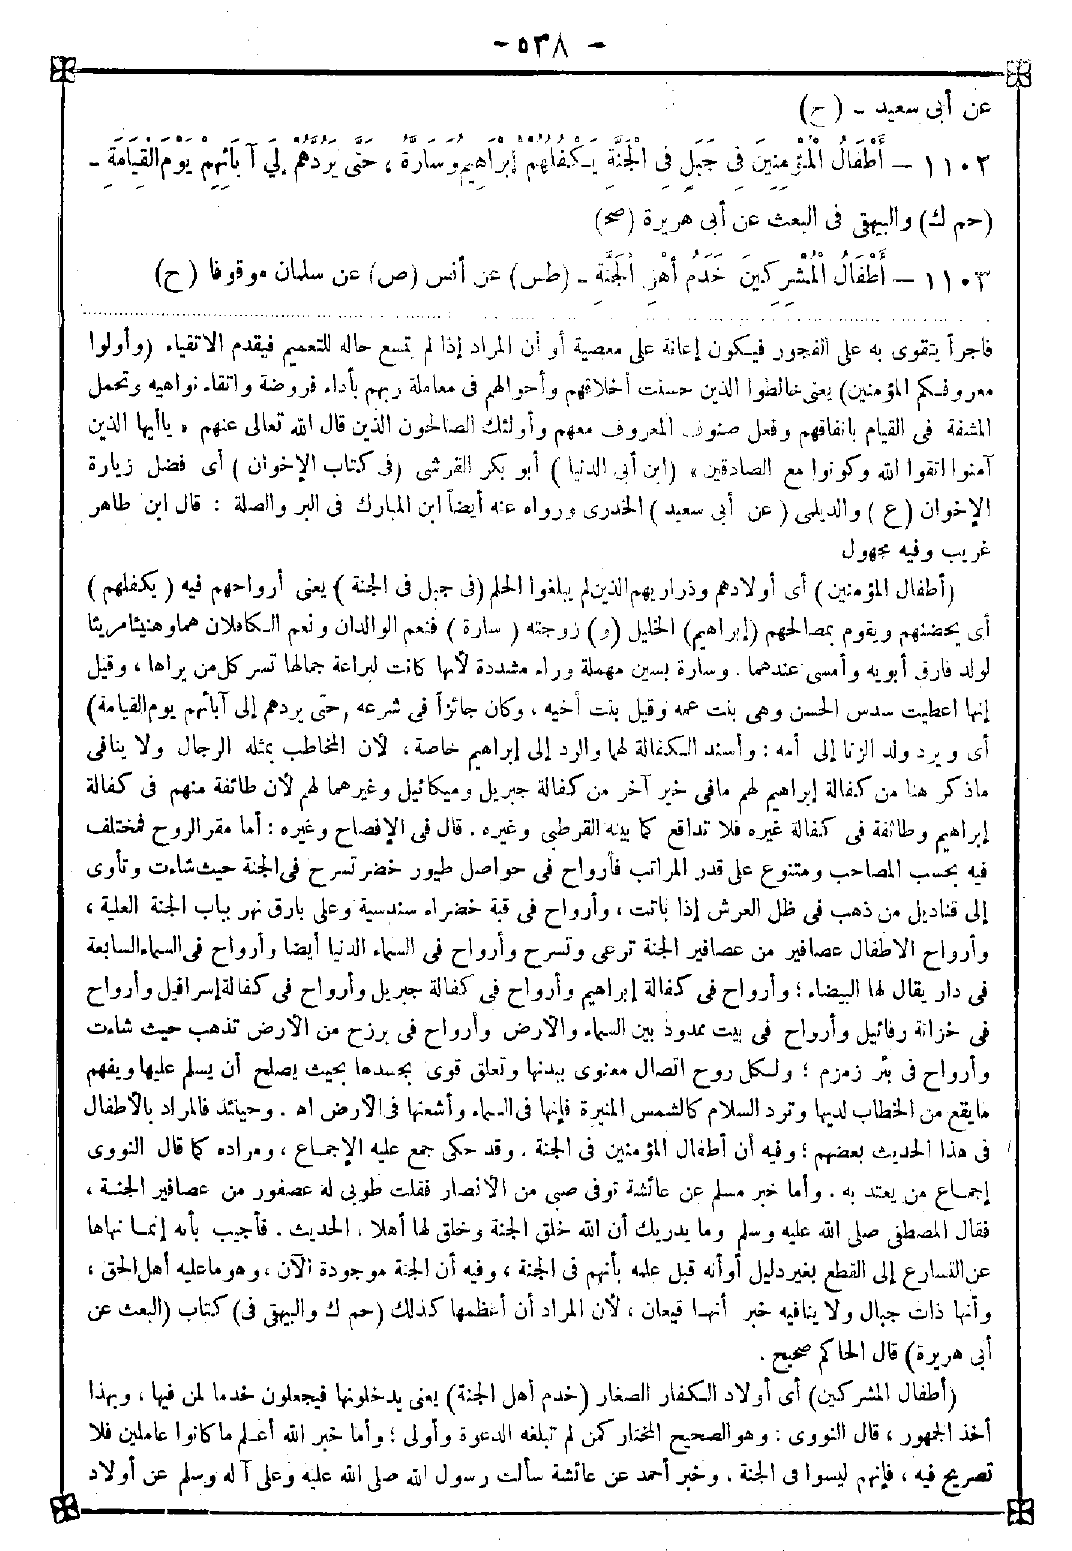 - ٥٣٨ -
عن أبى سعيد - (ح)
١١٠٢ - أَطْفَالُ الْمُؤْمِنِينَ فِى جَبَلٍ فِى الْجَنَّةِ يَكْفُلُهُمْ إِبْرَاهِيمُ وَسَارَّةُ، حَتَّى يَرُدَّهُمْ إِلَى آبَائِهِمْ يَوْمَ الْقِيَامَةِ -
(حم ك) والبيهقى فى البعث عن أبى هريرة (صح)
١١٠٣ - أَطْفَالُ الْمُشْرِكِينَ خَدَمُ أَهْلِ الْجَنَّةِ - (طس) عن أنس (ص) عن سلمان موقوفا (ح)
فاجراً يتقوى به على الفجور فيكون إعانة على معصية أو أن المراد إذا لم يتسع حاله للتعميم فيقدم الاتقياء (وأولوا
معروفكم المؤمنين) يعنى خالطوا الذين حسنت أخلاقهم وأحوالهم فى معاملة ربهم بأداء فروضة واتقاء نواهيه وتحمل
المشقة فى القيام بانفاقهم وفعل صنوف المعروف معهم وأولئك الصالحون الذين قال الله تعالى عنهم « ياأيها الذين
آمنوا اتقوا الله وكونوا مع الصادقين » (ابن أبى الدنيا) أبو بكر القرشى (فى كتاب الإخوان) أى فضل زيارة
الإخوان (ع) والديلمى (عن أبى سعيد) الخدرى ورواه عنه أيضاً ابن المبارك فى البر والصلة : قال ابن طاهر
غريب وفيه مجهول
(أطفال المؤمنين) أى أولادهم وذراريهم الذين لم يبلغوا الحلم (فى جبل فى الجنة) يعنى أرواحهم فيه (يكفلهم)
أى يحضنهم ويقوم بمصالحهم (إبراهيم) الخليل (و) زوجته (سارة) فنعم الوالدان ونعم الكافلان هما وهنيئا مريئا
لولد فارق أبويه وأمسى عندهما . وسارة بسين مهملة وراء مشددة لأنها كانت لبراعة جمالها تسر كل من يراها ، وقيل
إنها اعطيت سدس الحسن وهى بنت عمه وقيل بنت أخيه ، وكان جائزاً فى شرعه (حتى يردهم إلى آبائهم يوم القيامة)
أى ويرد ولد الزنا إلى أمه : وأسند الكفالة لهما والرد إلى إبراهيم خاصة ، لأن المخاطب بمثله الرجال ولا ينافى
ماذكر هنا من كفالة إبراهيم لهم مافى خبر آخر من كفالة جبريل وميكائيل وغيرهما لهم لأن طائفة منهم فى كفالة
إبراهيم وطائفة فى كفالة غيره فلا تدافع كما بينه القرطبى وغيره . قال فى الإفصاح وغيره : أما مقر الروح فمختلف
فيه بحسب المصاحب ومتنوع على قدر المراتب فأرواح فى حواصل طيور خضر تسرح فى الجنة حيث شاءت وتأوى
إلى قناديل من ذهب فى ظل العرش إذا باتت ، وأرواح فى قبة خضراء سندسية وعلى بارق نهر بباب الجنة العلية ،
وأرواح الاطفال عصافير من عصافير الجنة ترعى وتسرح وأرواح فى السماء الدنيا أيضا وأرواح فى السماء السابعة
فى دار يقال لها البيضاء ؛ وأرواح فى كفالة إبراهيم وأرواح فى كفالة جبريل وأرواح فى كفالة إسرافيل وأرواح
فى خزانة رفائيل وأرواح فى بيت ممدود بين السماء والأرض وأرواح فى برزخ من الأرض تذهب حيث شاءت
وأرواح فى بئر زمزم ؛ ولكل روح اتصال معنوى ببدنها وتعلق قوى بجسدها بحيث يصلح أن يسلم عليها ويفهم
مايقع من الخطاب لديها وترد السلام كالشمس المنيرة فإنها فى السماء وأشعتها فى الأرض اه . وحينئذ فالمراد بالأطفال
فى هذا الحديث بعضهم ؛ وفيه أن أطفال المؤمنين فى الجنة . وقد حكى جمع عليه الإجماع ، ومراده كما قال النووى
إجماع من يعتد به . وأما خبر مسلم عن عائشة توفى صبى من الأنصار فقلت طوبى له عصفور من عصافير الجنة ،
فقال المصطفى صلى الله عليه وسلم وما يدريك أن الله خلق الجنة وخلق لها أهلا . الحديث . فأجيب بأنه إنما نهاها
عن التسارع إلى القطع بغير دليل أو أنه قبل علمه بأنهم فى الجنة ، وفيه أن الجنة موجودة الآن ، وهو ماعليه أهل الحق ،
وأنها ذات جبال ولا ينافيه خبر أنها قيعان ، لأن المراد أن أعظمها كذلك (حم ك والبيهقى فى) كتاب (البعث عن
أبى هريرة) قال الحاكم صحيح .
(أطفال المشركين) أى أولاد الكفار الصغار (خدم أهل الجنة) يعنى يدخلونها فيجعلون خدما لمن فيها ، وبهذا
أخذ الجمهور ، قال النووى : وهو الصحيح المختار كمن لم تبلغه الدعوة وأولى ؛ وأما خبر الله أعلم ماكانوا عاملين فلا
تصريح فيه ، فإنهم ليسوا فى الجنة . وخبر أحمد عن عائشة سألت رسول الله صلى الله عليه وعلى آله وسلم عن أولاد